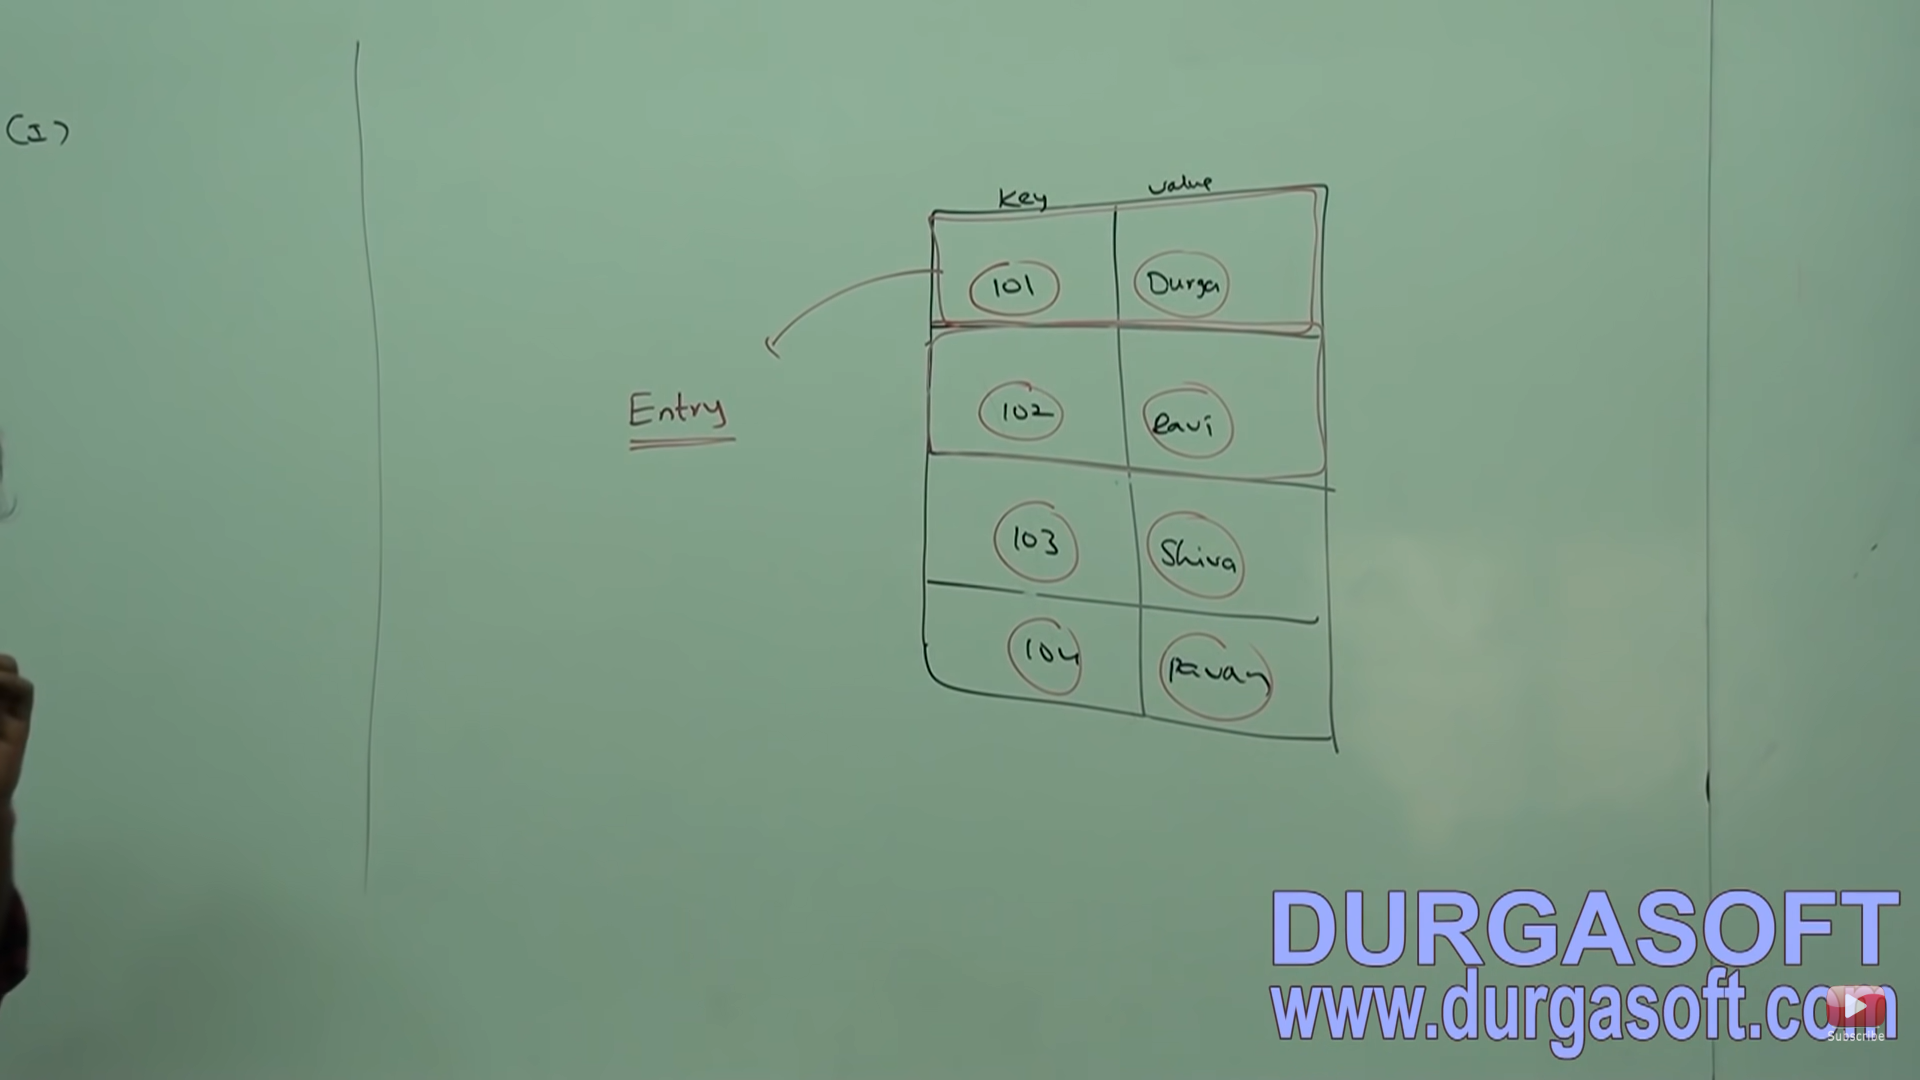 (I)
Key value
101 Durga
Entry
102 Ravi
103 Shiva
104 Pavan
DURGASOFT
www.durgasoft.com
Subscribe